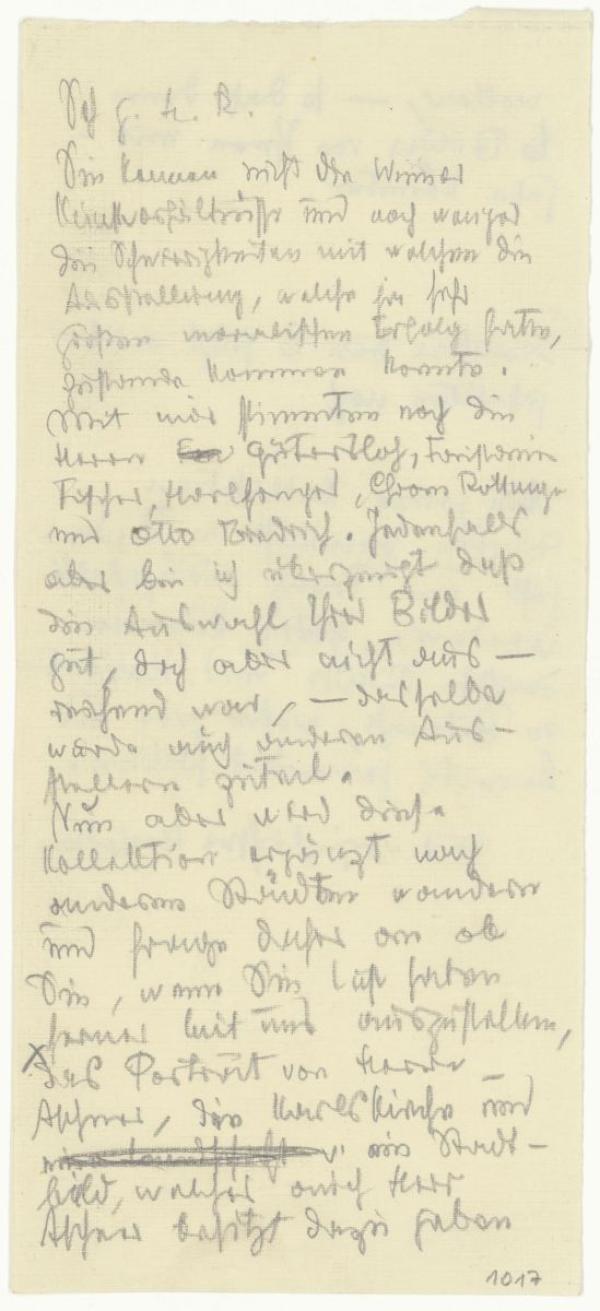 Seh g. H. R.
Sie kennen nicht die Wiener
Kunstverhältnisse und noch weniger
die Schwierigkeiten mit welchen die
Ausstellung, welche sehr
großen moralischen Erfolg hatte,
zustande kommen konnte.
Mit mir stimmten noch die
Herren Gütersloh, Faistauer
Fischer, Harlfinger,
und Otto Friedrich. Jedenfalls
aber bin ich überzeugt daß
die Auswahl Ihrer Bilder
gut, doch aber nicht aus –
reichend war, – dasselbe
wurde auch anderen Aus –
stellern zuteil.
Nun aber wird diese
Kollektion ergänzt nach
anderen Städten wandern
und frage daher an ob
Sie, wenn Sie Lust haben
ferner mit uns auszustellen,
X das Porträt von Herrn
Aschner, die Karlskirche und
eine Landschaft u. ein Stadt –
bild, welches auch Herr
Aschner besitzt dazu geben
1017